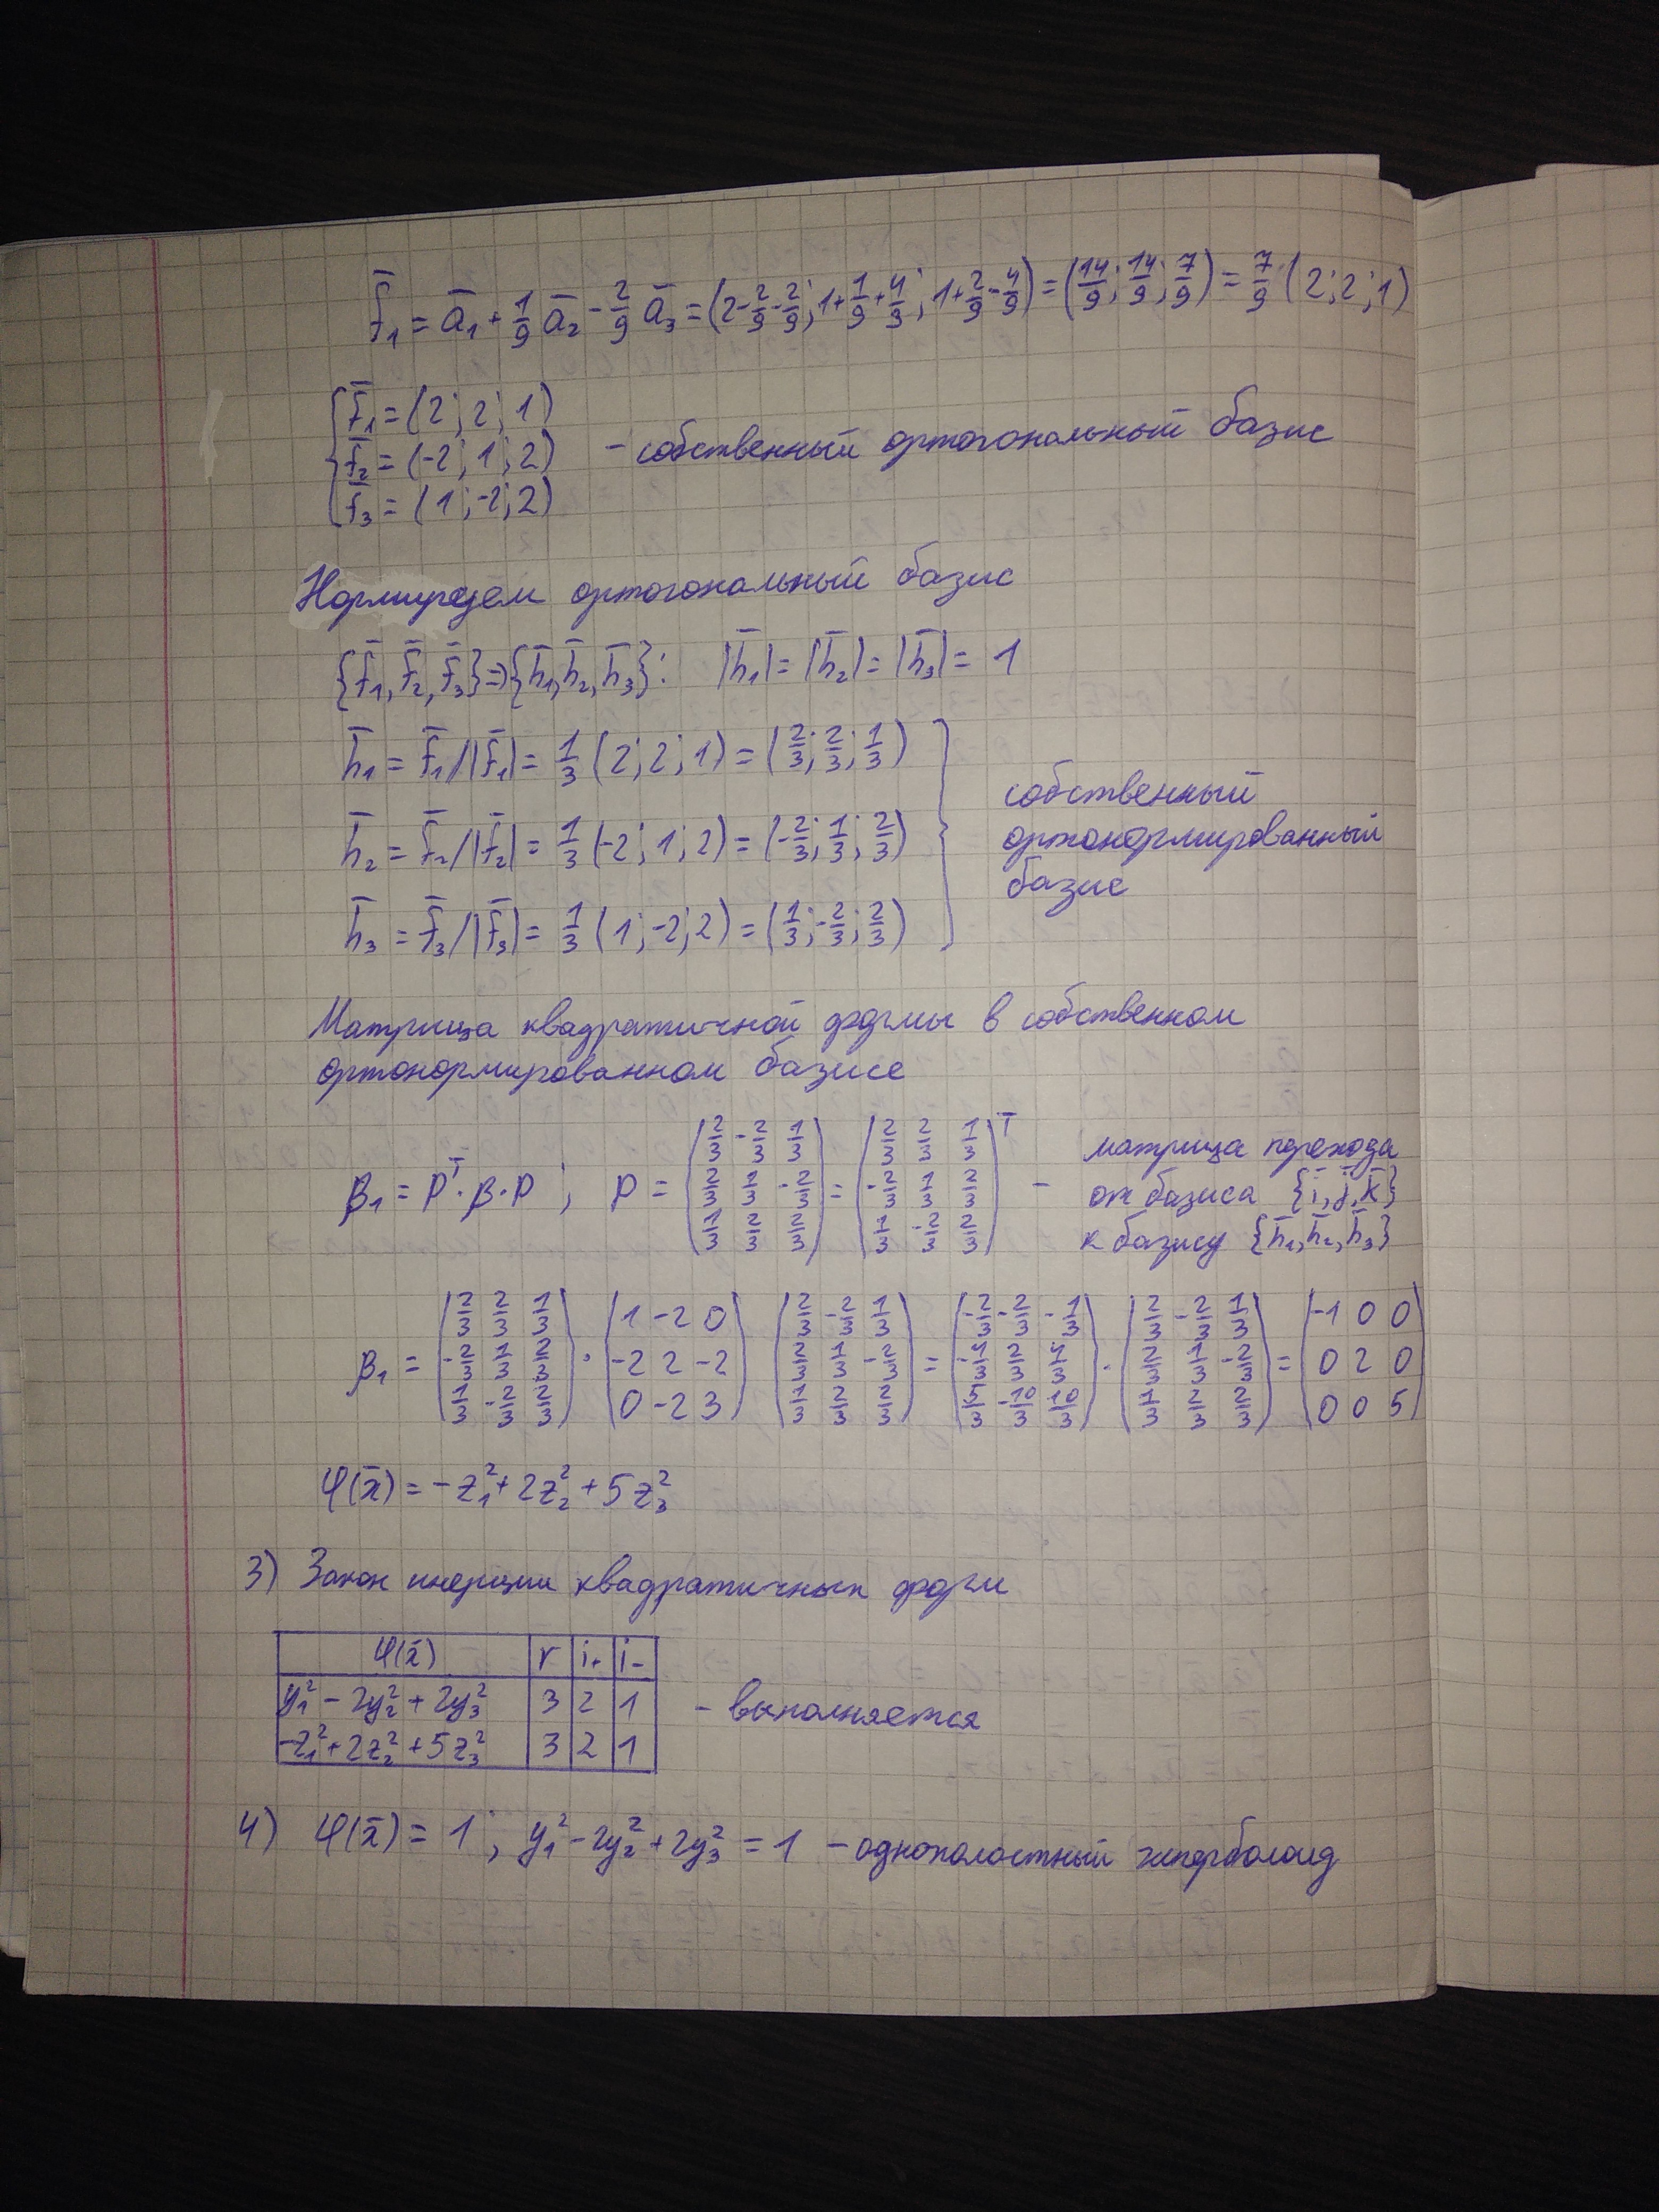 f̄₁ = ā₁ + 1/9 ā₂ - 2/9 ā₃ = (2 - 2/9 - 2/9; 1 + 1/9 + 4/9; 1 + 2/9 - 4/9) = (14/9; 14/9; 7/9) = 7/9 (2; 2; 1)
f̄₁ = (2; 2; 1)
f̄₂ = (-2; 1; 2) - собственный ортогональный базис
f̄₃ = (1; -2; 2)
Нормируем ортогональный базис
{f̄₁, f̄₂, f̄₃} ⇒ {h̄₁, h̄₂, h̄₃}: |h̄₁| = |h̄₂| = |h̄₃| = 1
h̄₁ = f̄₁/|f̄₁| = 1/3 (2; 2; 1) = (2/3; 2/3; 1/3)
h̄₂ = f̄₂/|f̄₂| = 1/3 (-2; 1; 2) = (-2/3; 1/3; 2/3)
h̄₃ = f̄₃/|f̄₃| = 1/3 (1; -2; 2) = (1/3; -2/3; 2/3)
собственный
ортонормированный
базис
Матрица квадратичной формы в собственном
ортонормированном базисе
β₁ = Pᵀ · β · P ; P = (2/3 -2/3 1/3; 2/3 1/3 -2/3; 1/3 2/3 2/3) = (2/3 2/3 1/3; -2/3 1/3 2/3; 1/3 -2/3 2/3)ᵀ -
матрица перехода
от базиса {ī, j̄, k̄}
к базису {h̄₁, h̄₂, h̄₃}
β₁ = (2/3 2/3 1/3; -2/3 1/3 2/3; 1/3 -2/3 2/3) · (1 -2 0; -2 2 -2; 0 -2 3) (2/3 -2/3 1/3; 2/3 1/3 -2/3; 1/3 2/3 2/3) = (-2/3 -2/3 -1/3; -4/3 2/3 4/3; 5/3 -10/3 10/3) · (2/3 -2/3 1/3; 2/3 1/3 -2/3; 1/3 2/3 2/3) = (-1 0 0; 0 2 0; 0 0 5)
φ(x̄) = -z₁² + 2z₂² + 5z₃²
3) Закон инерции квадратичных форм
φ(x̄) r i₊ i₋
y₁² - 2y₂² + 2y₃² 3 2 1 - выполняется
-z₁² + 2z₂² + 5z₃² 3 2 1
4) φ(x̄) = 1 ; y₁² - 2y₂² + 2y₃² = 1 - однополостный гиперболоид